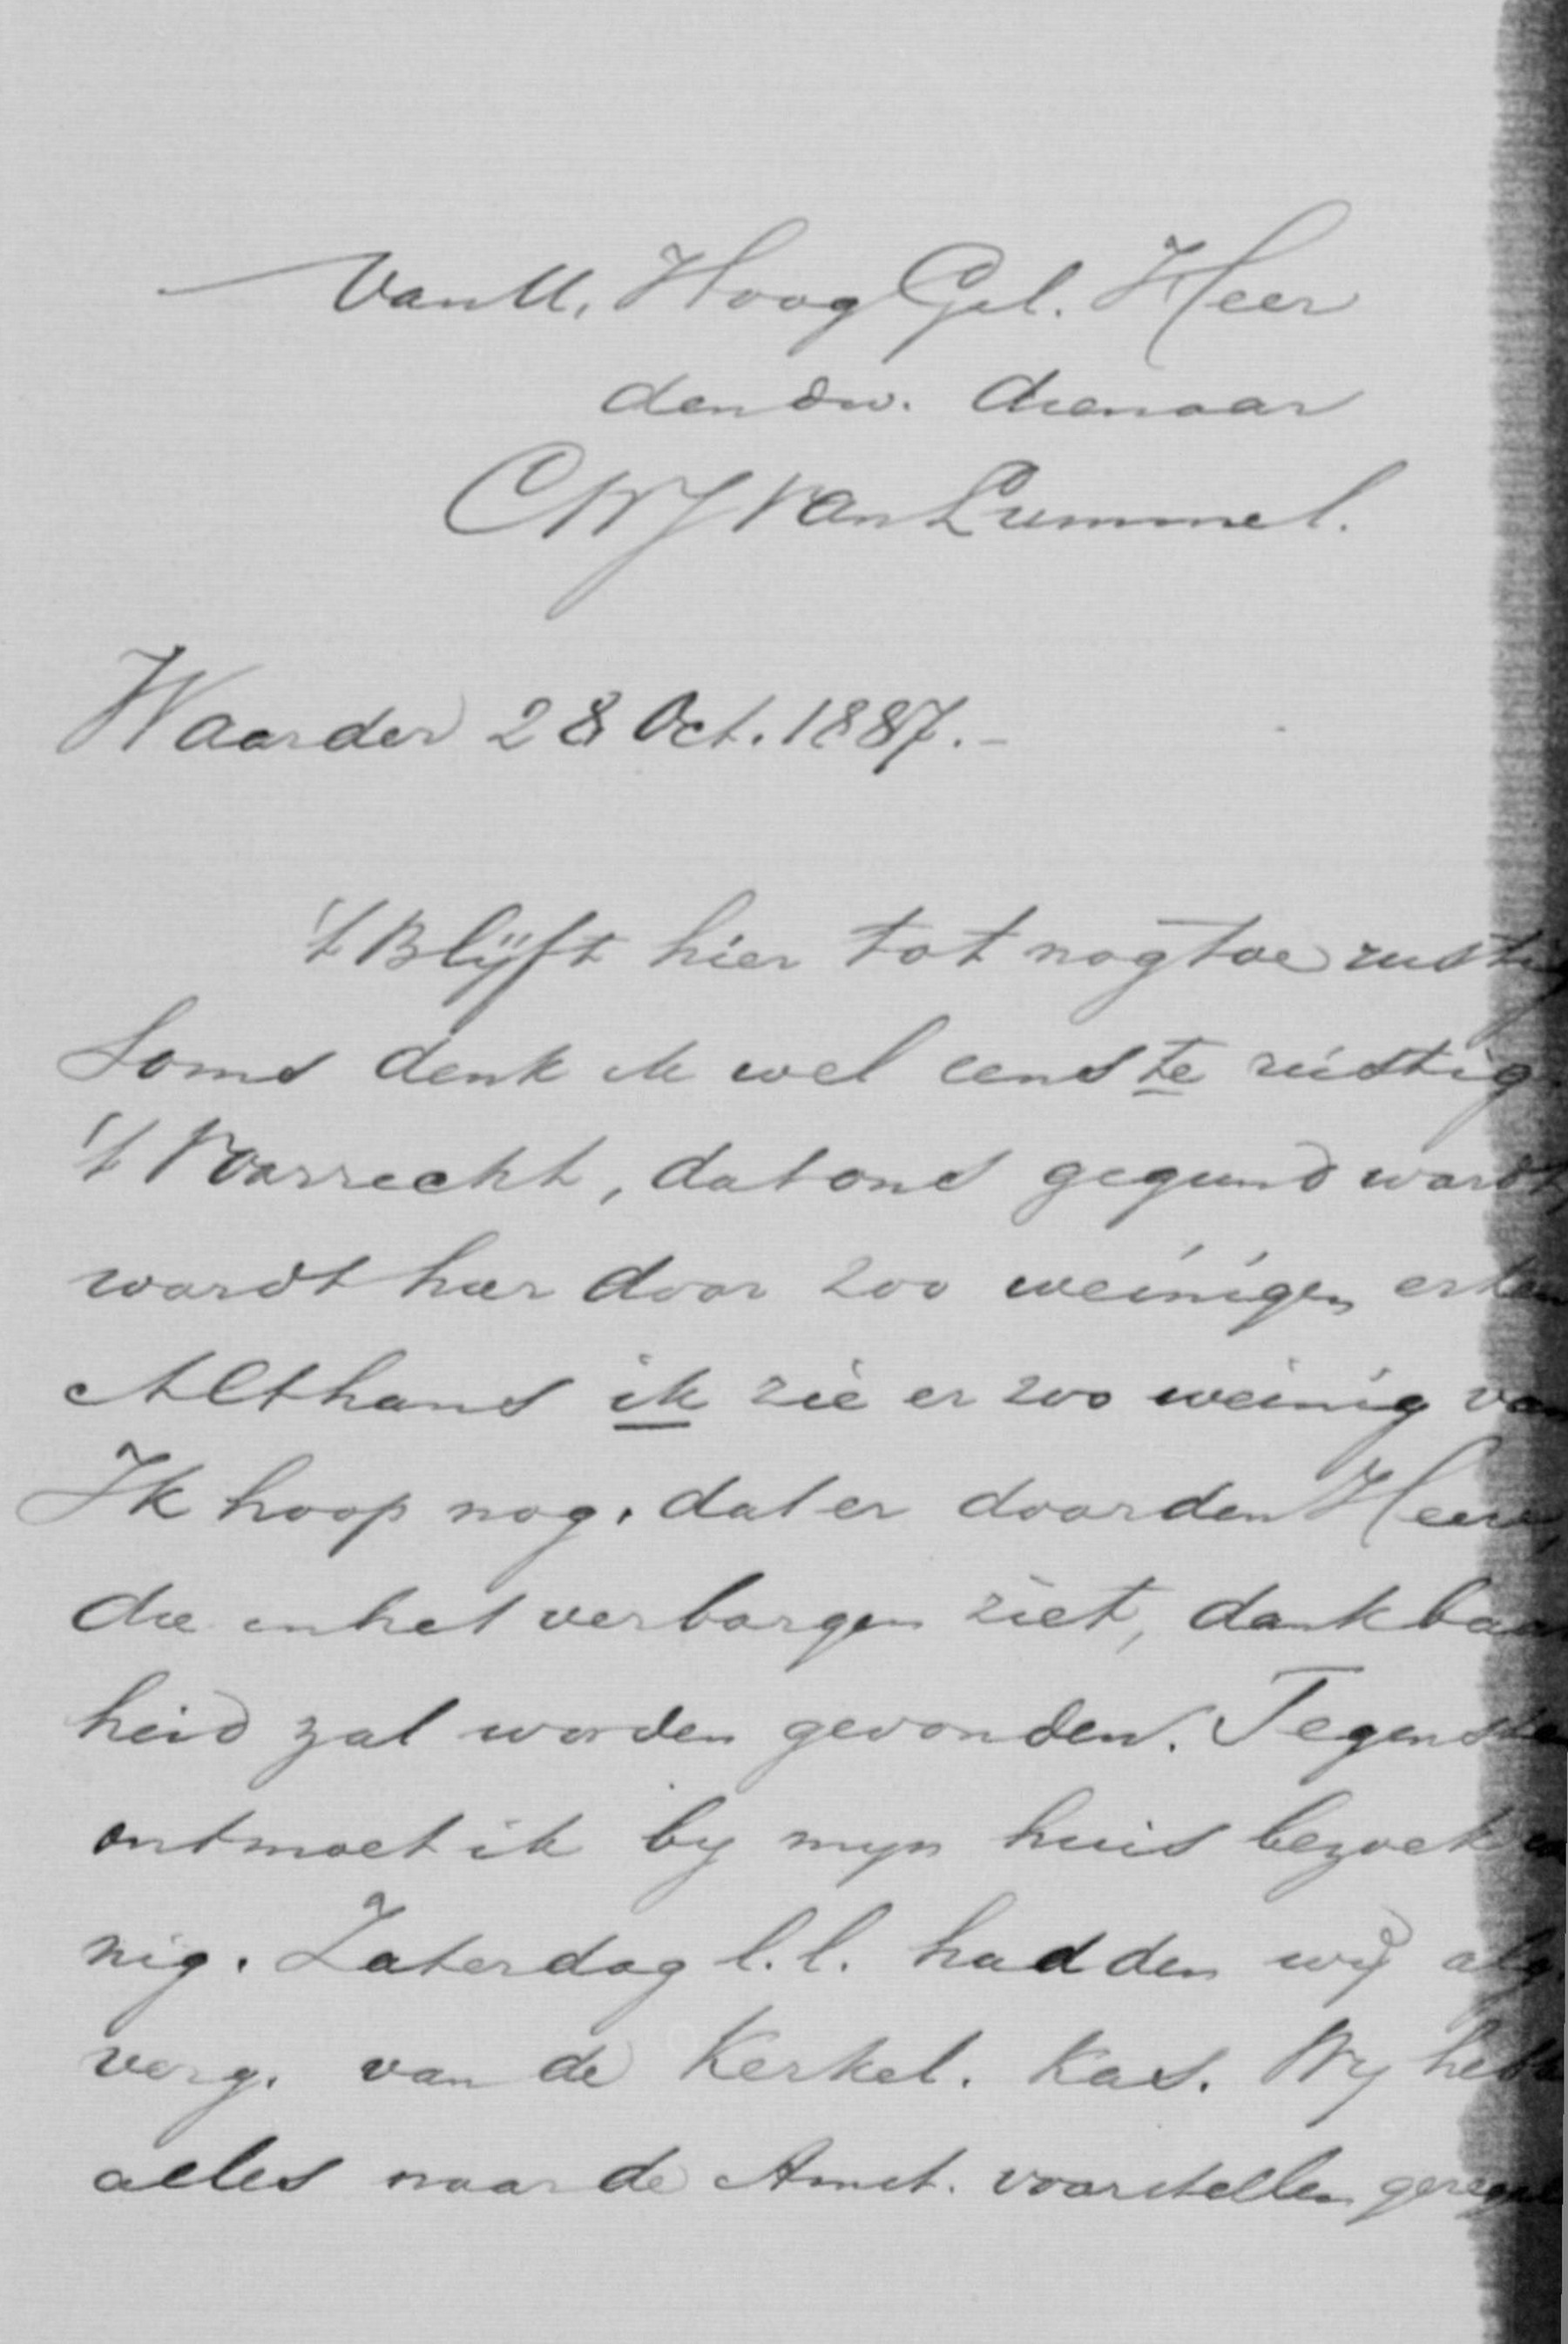 Van U, Hoog Gel. Heer
den dw. dienaar
CWJ Van Lummel.
Waarder 28 Oct. 1887.-
't Blÿft hier tot nogtoe rustig
Soms denk ik wel eens te rústig
't Voorrecht, dat ons gegund wordt,
wordt hier door zoo weinigen erken
Althans ik zie er zoo weinig van
Ik hoop nog, dat er door den Heere,
die in het verborgen ziet, dankbaar
heid zal worden gevonden. Tegenst
ontmoet ik by myn huis bezoek
nig. Zaterdag l.l. hadden wÿ alg
verg. van de Kerkel. Kas. Wy hebb
alles naar de Amst. voorstellen geregel